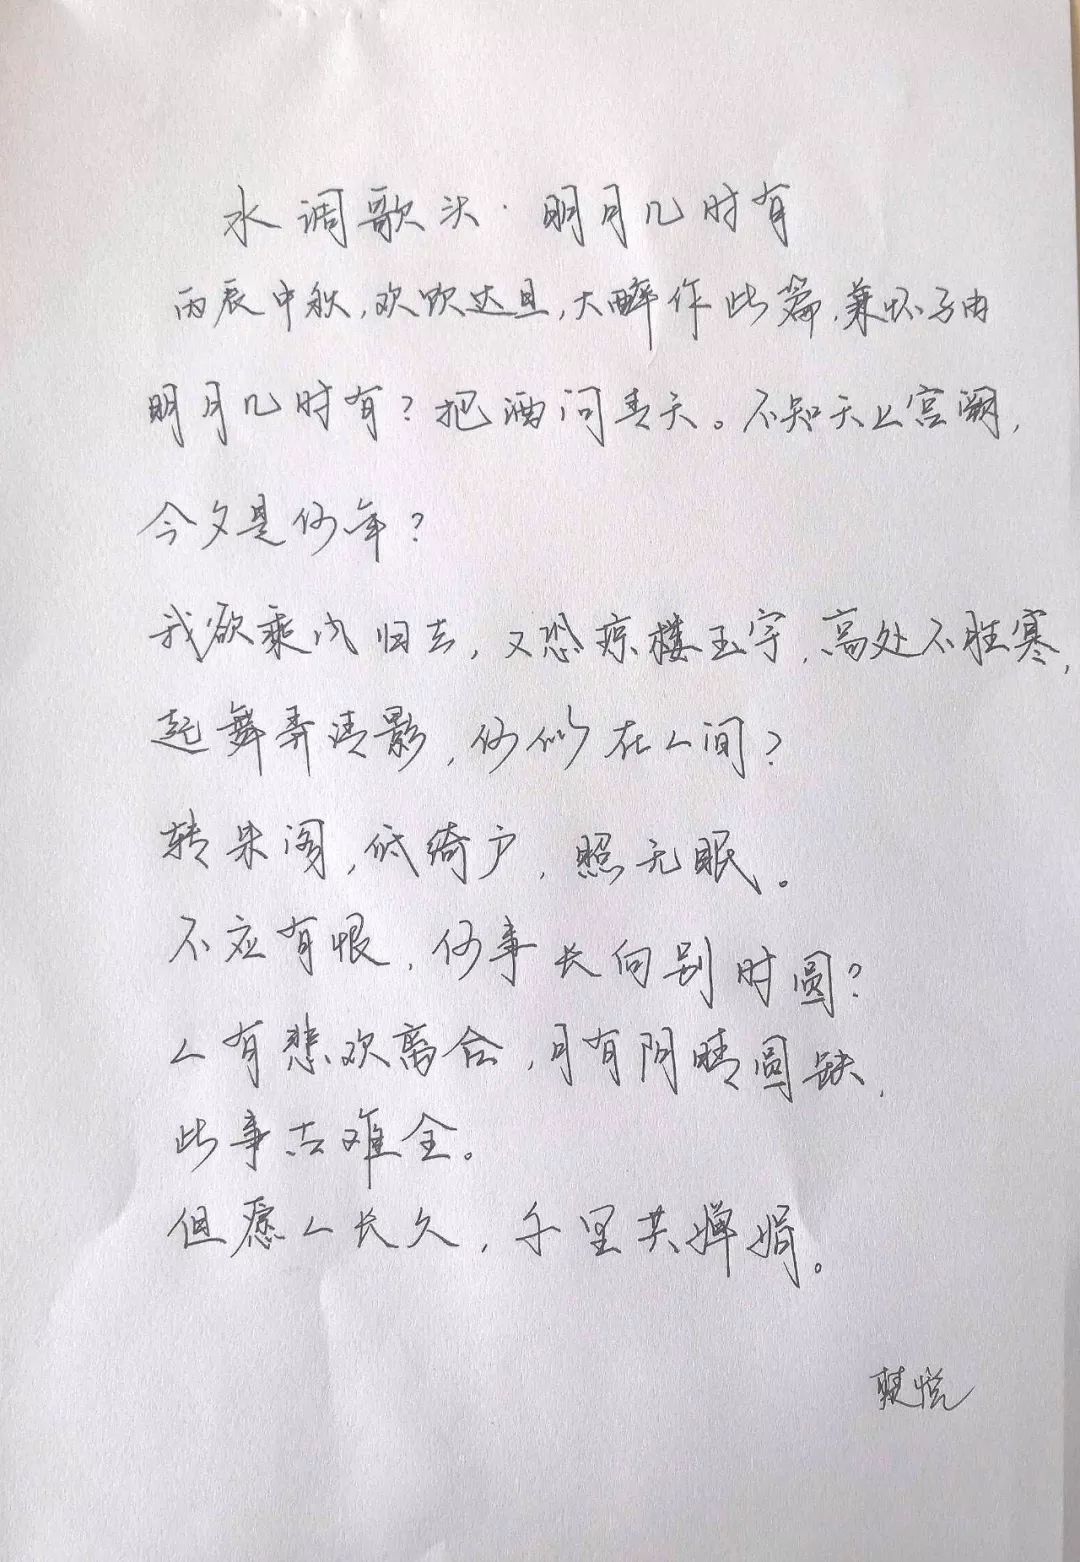 水调歌头·明月几时有
丙辰中秋,欢饮达旦,大醉作此篇,兼怀子由
明月几时有?把酒问青天。不知天上宫阙,
今夕是何年?
我欲乘风归去,又恐琼楼玉宇,高处不胜寒,
起舞弄清影,何似在人间?
转朱阁,低绮户,照无眠。
不应有恨,何事长向别时圆?
人有悲欢离合,月有阴晴圆缺,
此事古难全。
但愿人长久,千里共婵娟。